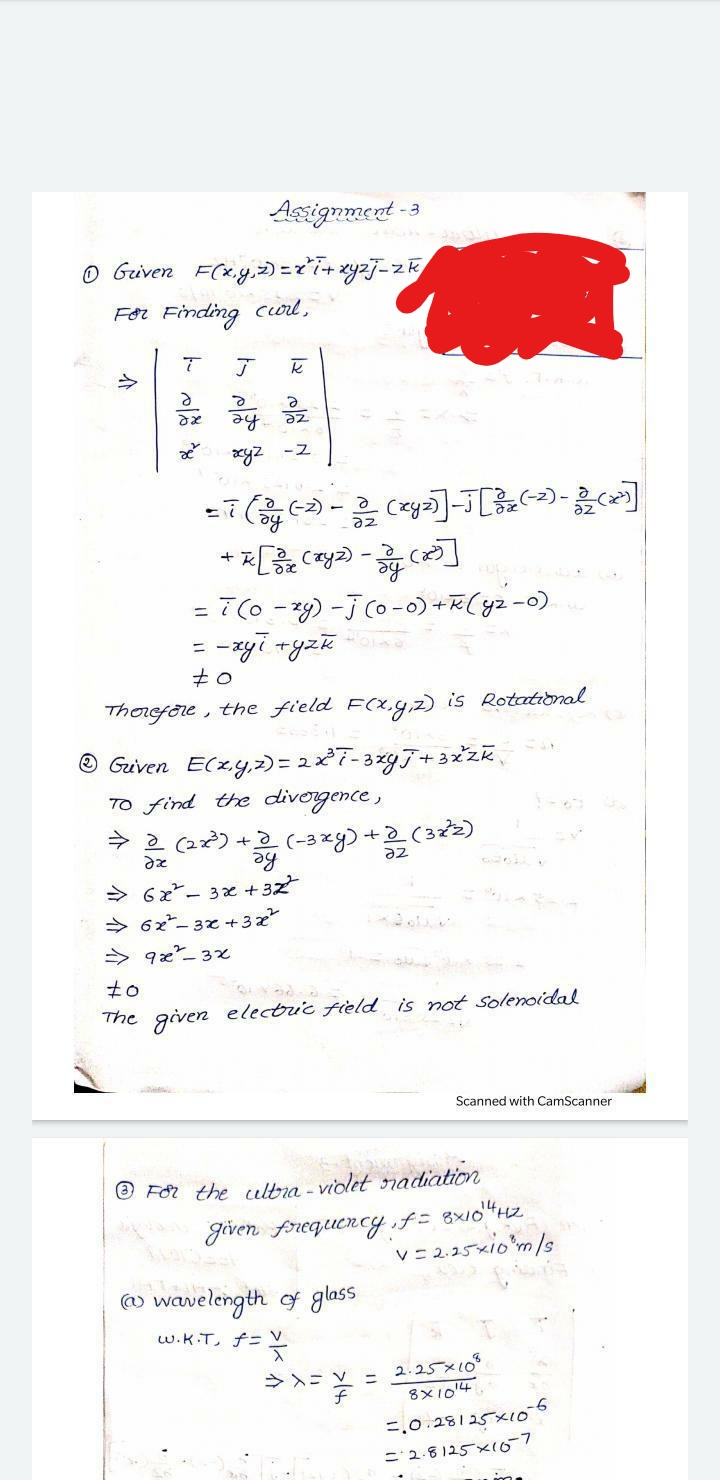 Assignment - 3
① Given F(x,y,z) = x² i̅ + xyz j̅ - z k̅
For Finding curl,
⇒ | i̅ j̅ k̅ |
| ∂/∂x ∂/∂y ∂/∂z |
| x² xyz -z |
= i̅ (∂/∂y (-z) - ∂/∂z (xyz)] - j̅ [∂/∂x (-z) - ∂/∂z (x²)]
+ k̅ [∂/∂x (xyz) - ∂/∂y (x²)]
= i̅ (0 - xy) - j̅ (0-0) + k̅ (yz - 0)
= -xy i̅ + yz k̅
≠ 0
Therefore, the field F(x,y,z) is Rotational
② Given E(x,y,z) = 2x³ i̅ - 3xy j̅ + 3x²z k̅
To find the divergence,
⇒ ∂/∂x (2x³) + ∂/∂y (-3xy) + ∂/∂z (3x²z)
⇒ 6x² - 3x + 3z²
⇒ 6x² - 3x + 3x²
⇒ 9x² - 3x
≠ 0
The given electric field is not solenoidal
Scanned with CamScanner
③ For the ultra-violet radiation
given frequency, f = 8×10¹⁴ Hz
v = 2.25×10⁸ m/s
(a) wavelength of glass
W.K.T, f = v/λ
⇒ λ = v/f = 2.25×10⁸ / 8×10¹⁴
= 0.28125×10⁻⁶
= 2.8125×10⁻⁷